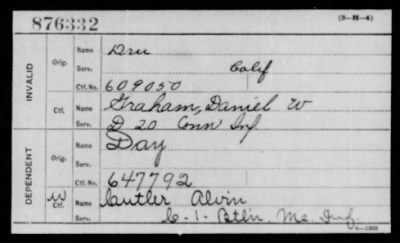 876332 (3-H-4)
INVALID
Orig. Name Dru
Serv. Calif
Ctf. No. 609050
Ctf. Name Graham, Daniel W
Serv. D 20 Conn Inf.
DEPENDENT
Orig. Name Day
Serv.
Ctf. No. 647792
W Ctf. Name Cutler Alvin
Serv. C. 1. Btln. Me. Inf.